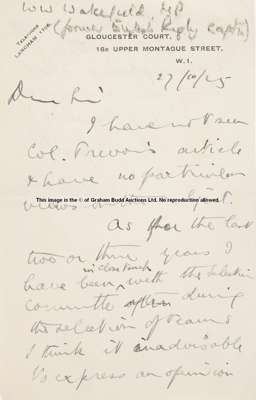 W W Wakefield MP
(former English Rugby captain)
TELEPHONE
LANGHAM 1706.
GLOUCESTER COURT,
16B UPPER MONTAGUE STREET,
W.1.
27/10/25
Dear Sir
I have not seen
Col. Trevor's article
& have no particular
views
This image is the © of Graham Budd Auctions Ltd. No reproduction allowed.
As for the last
two or three years I
have been in close touch with the selection
committee during
the selection of teams
I think it inadvisable
to express an opinion